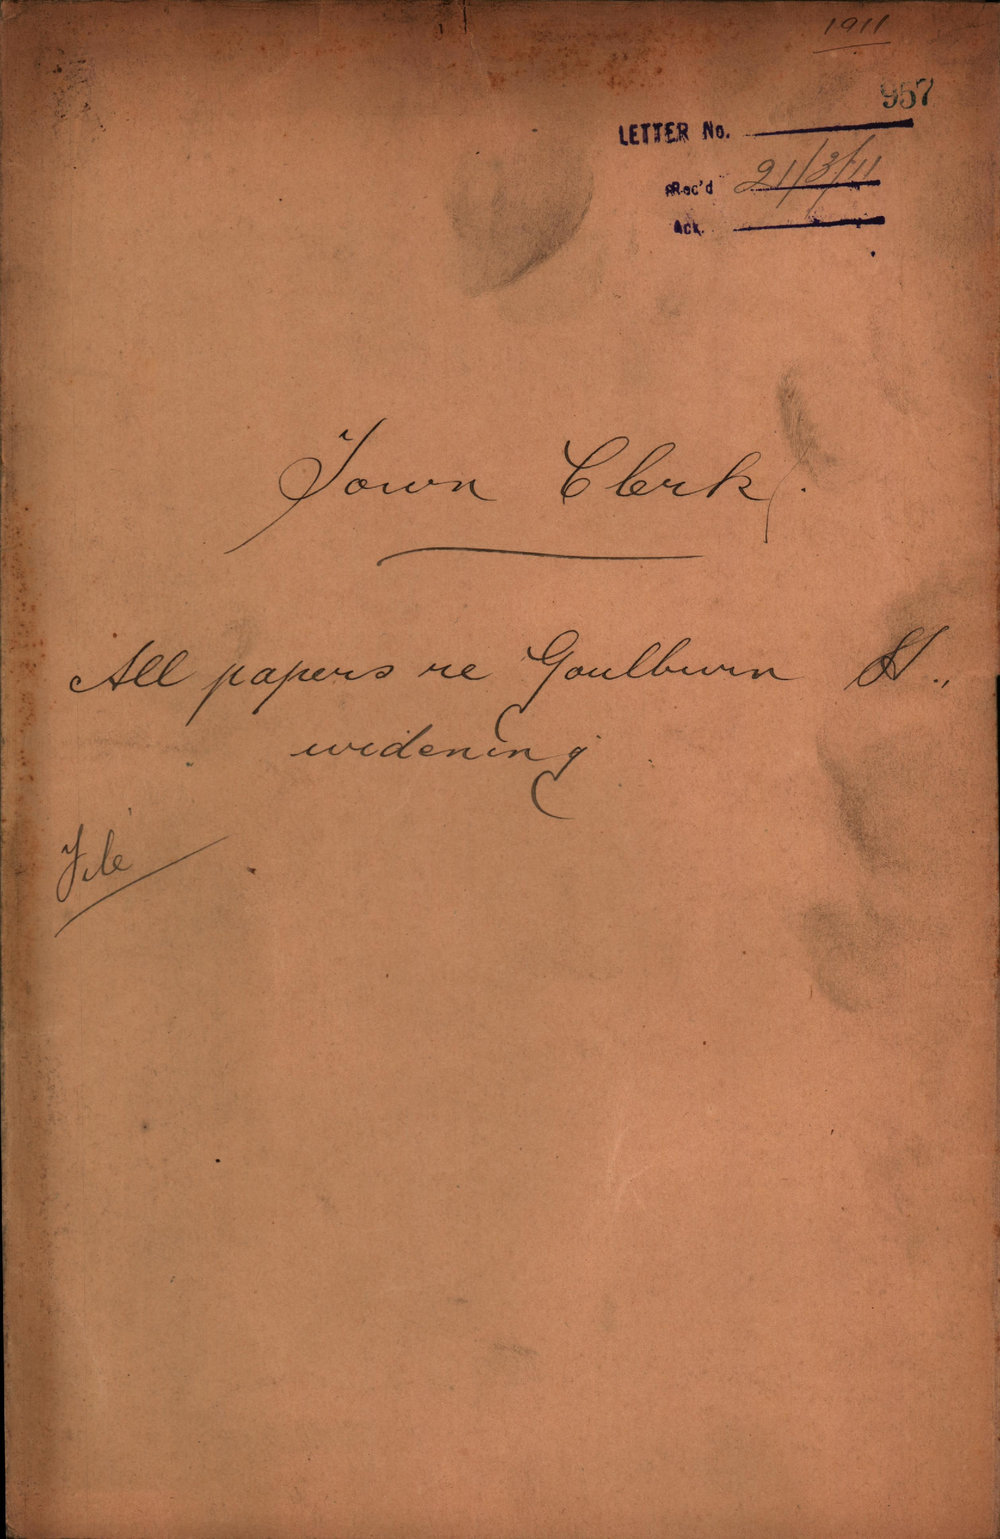 1911
957
LETTER No.
Rec'd 21/3/11
Ack.
Town Clerk.
All papers re Goulburn St.,
widening
File